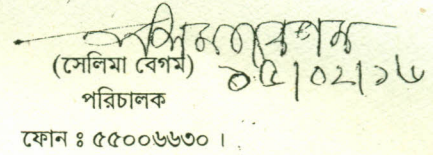 সেলিমা বেগম
(সেলিমা বেগম)
০৫/০২/১৬
পরিচালক
ফোন ঃ ৫৫০০৬৬৩০ ।